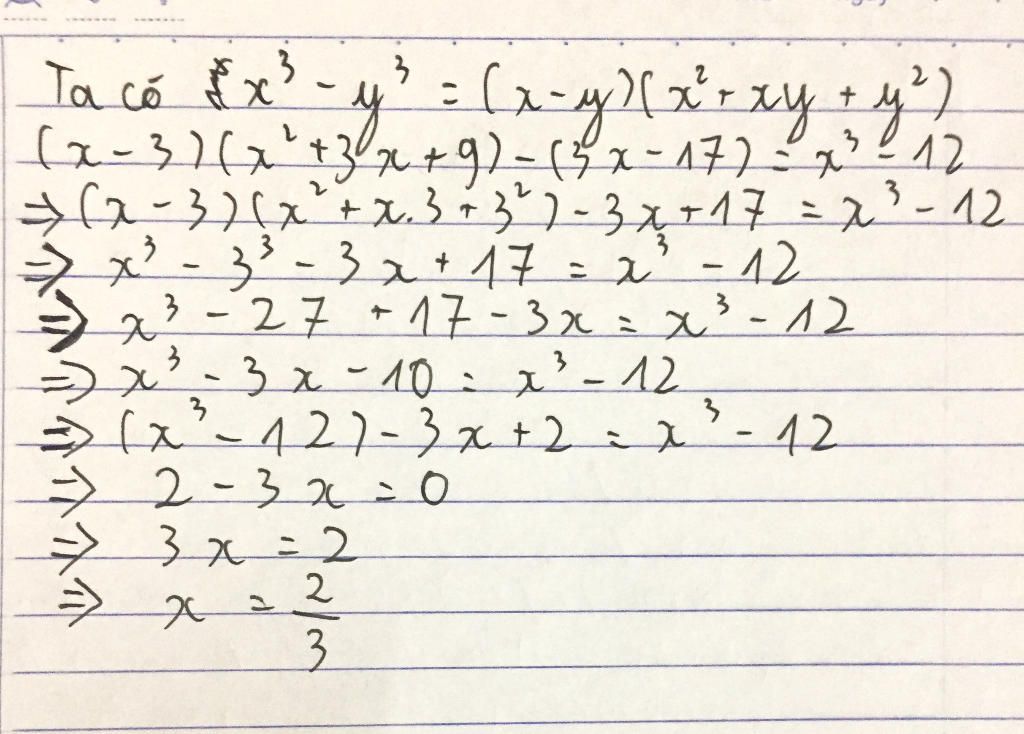 Ta có x³ - y³ = (x - y)(x² + xy + y²)
(x - 3)(x² + 3x + 9) - (3x - 17) = x³ - 12
⇒ (x - 3)(x² + x.3 + 3²) - 3x + 17 = x³ - 12
⇒ x³ - 3³ - 3x + 17 = x³ - 12
⇒ x³ - 27 + 17 - 3x = x³ - 12
⇒ x³ - 3x - 10 = x³ - 12
⇒ (x³ - 12) - 3x + 2 = x³ - 12
⇒ 2 - 3x = 0
⇒ 3x = 2
⇒ x = 2/3